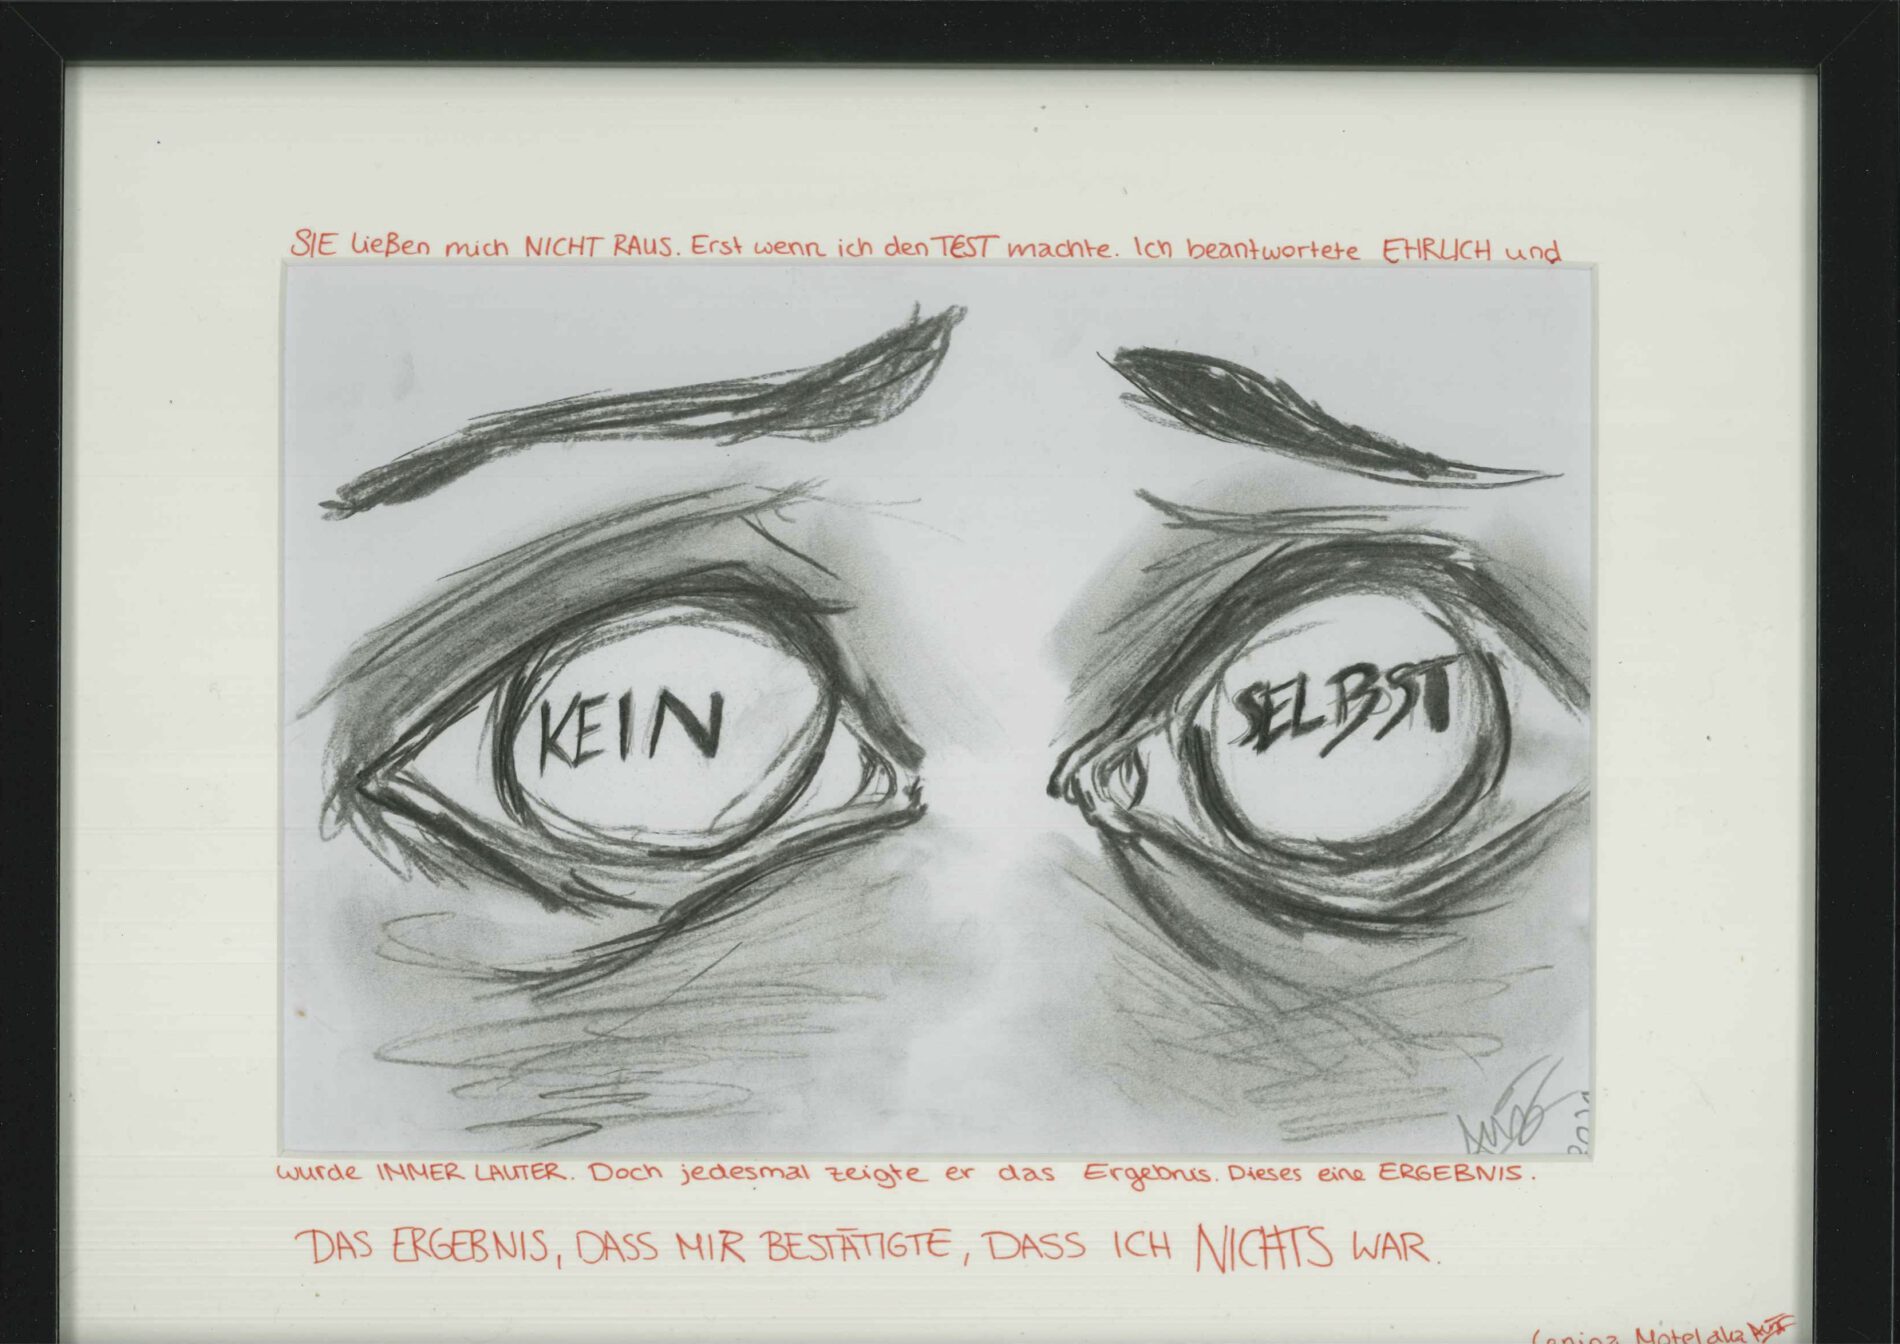 SIE ließen mich NICHT RAUS. Erst wenn ich den TEST machte. Ich beantwortete EHRLICH und
KEIN
SELBST
wurde IMMER LAUTER. Doch jedesmal zeigte er das Ergebnis. Dieses eine ERGEBNIS.
DAS ERGEBNIS, DASS MIR BESTÄTIGTE, DASS ICH NICHTS WAR.